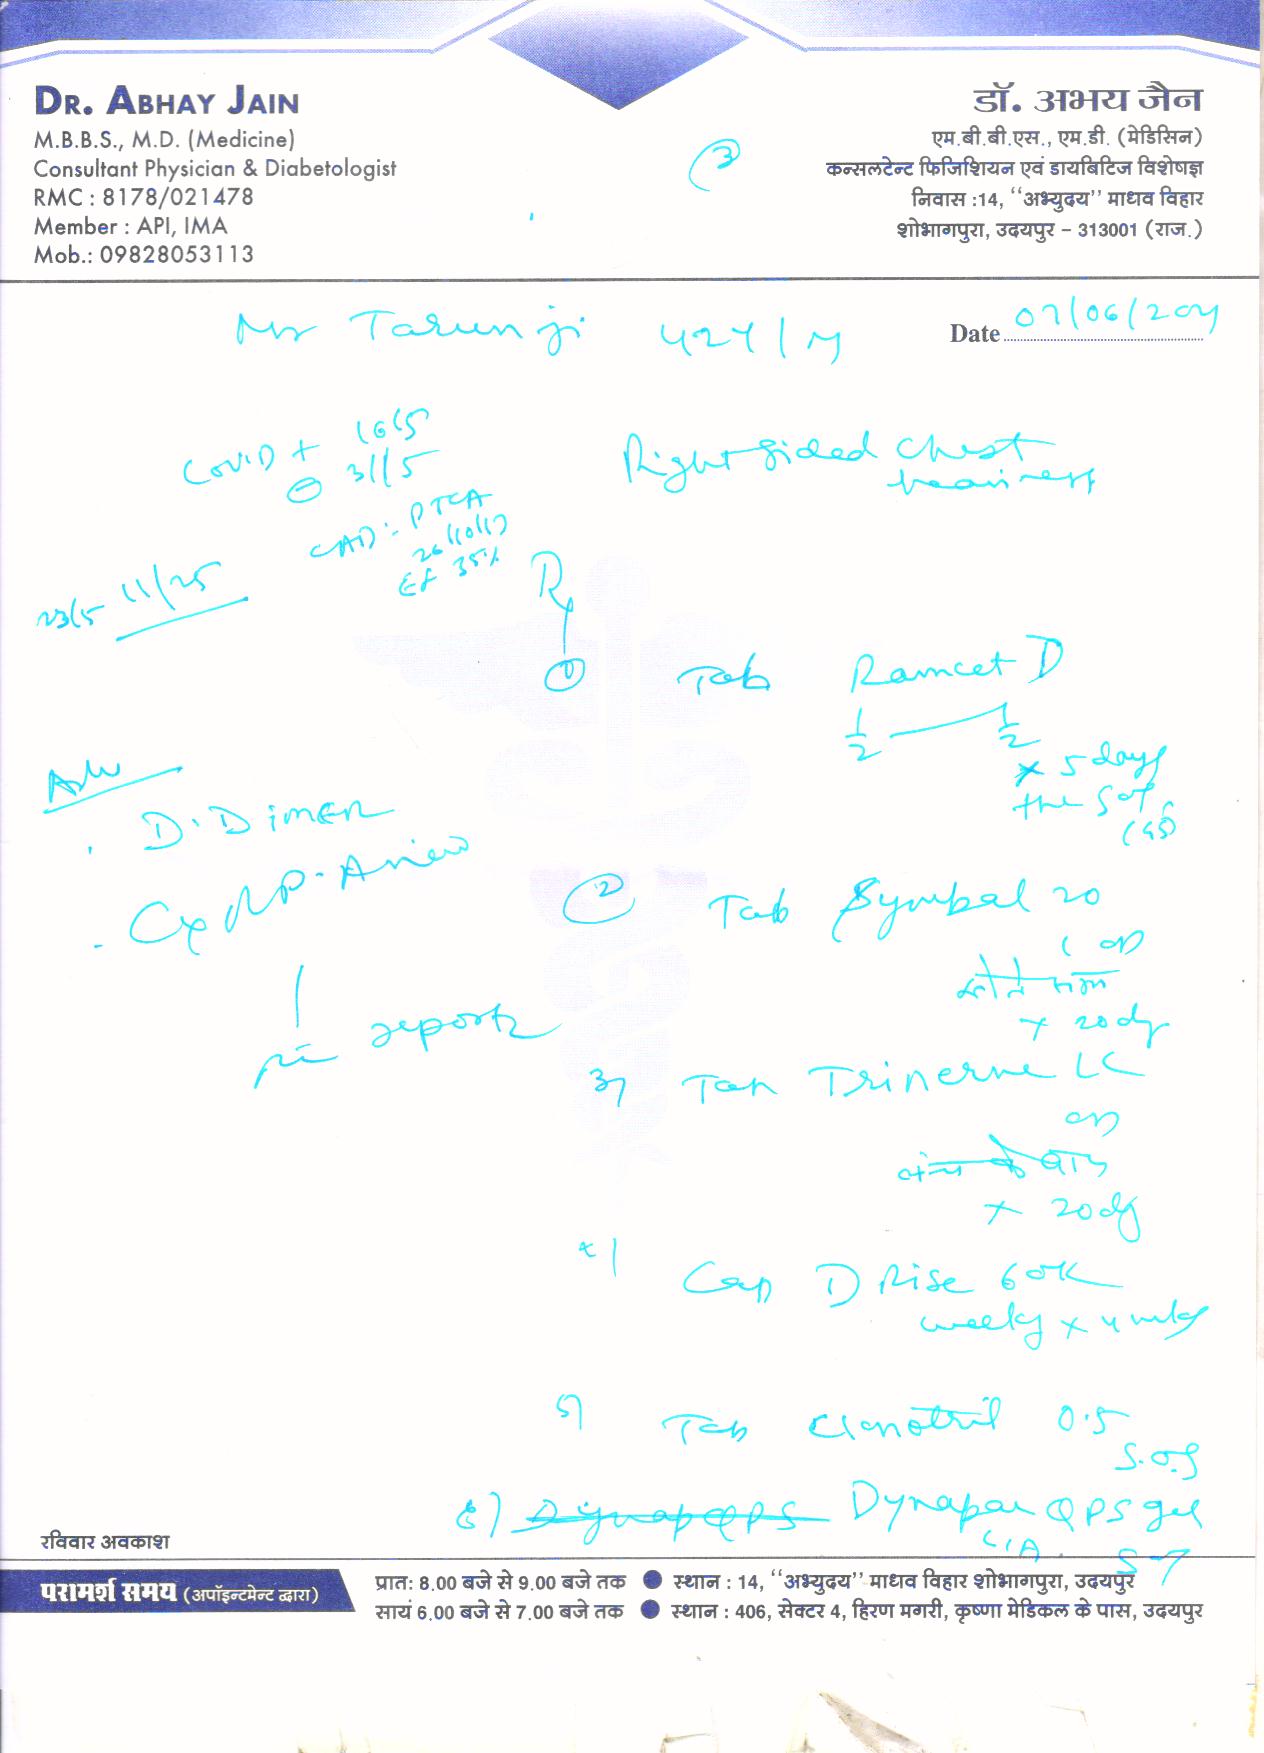 DR. ABHAY JAIN
M.B.B.S., M.D. (Medicine)
Consultant Physician & Diabetologist
RMC : 8178/021478
Member : API, IMA
Mob.: 09828053113
डॉ. अभय जैन
एम.बी.बी.एस., एम.डी. (मेडिसिन)
कन्सलटेन्ट फिजिशियन एवं डायबिटिज विशेषज्ञ
निवास :14, ‘‘अभ्युदय’’ माधव विहार
शोभागपुरा, उदयपुर – 313001 (राज.)
3
Mr Tarun ji 42Y/M
Date 07/06/2021
Covid + 16/5
⊖ 31/5
CAD :- PTCA
26/10/17
EF 35%
23/5 11/25
Right sided chest
heaviness
Rx
① Tab Ramcet D
1/2 — 1/2
x 5 days
the SOS
Adv
. D.Dimer
. CxR P-A view
reports
② Tab Symbal 20
1 OD
x 20 dy
3) Tab Trinerve LC
OD
x 20 dy
4) Cap D Rise 60K
weekly x 4 wks
5) Tab Clonotril 0.5
S.O.S
6) Dynapar QPS gel
L/A
रविवार अवकाश
परामर्श समय (अपॉइन्टमेन्ट द्वारा)
प्रात: 8.00 बजे से 9.00 बजे तक ● स्थान : 14, ‘‘अभ्युदय’’ माधव विहार शोभागपुरा, उदयपुर
सायं 6.00 बजे से 7.00 बजे तक ● स्थान : 406, सेक्टर 4, हिरण मगरी, कृष्णा मेडिकल के पास, उदयपुर